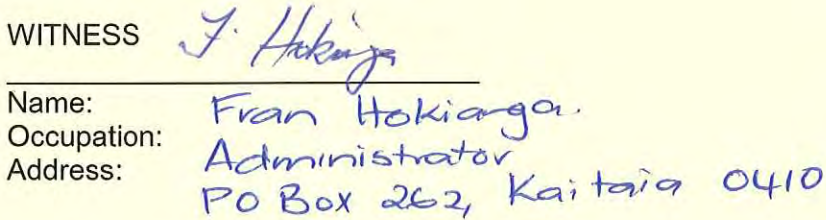 WITNESS F. Hokianga
Name: Fran Hokianga.
Occupation: Administrator
Address: PO Box 262, Kaitaia 0410